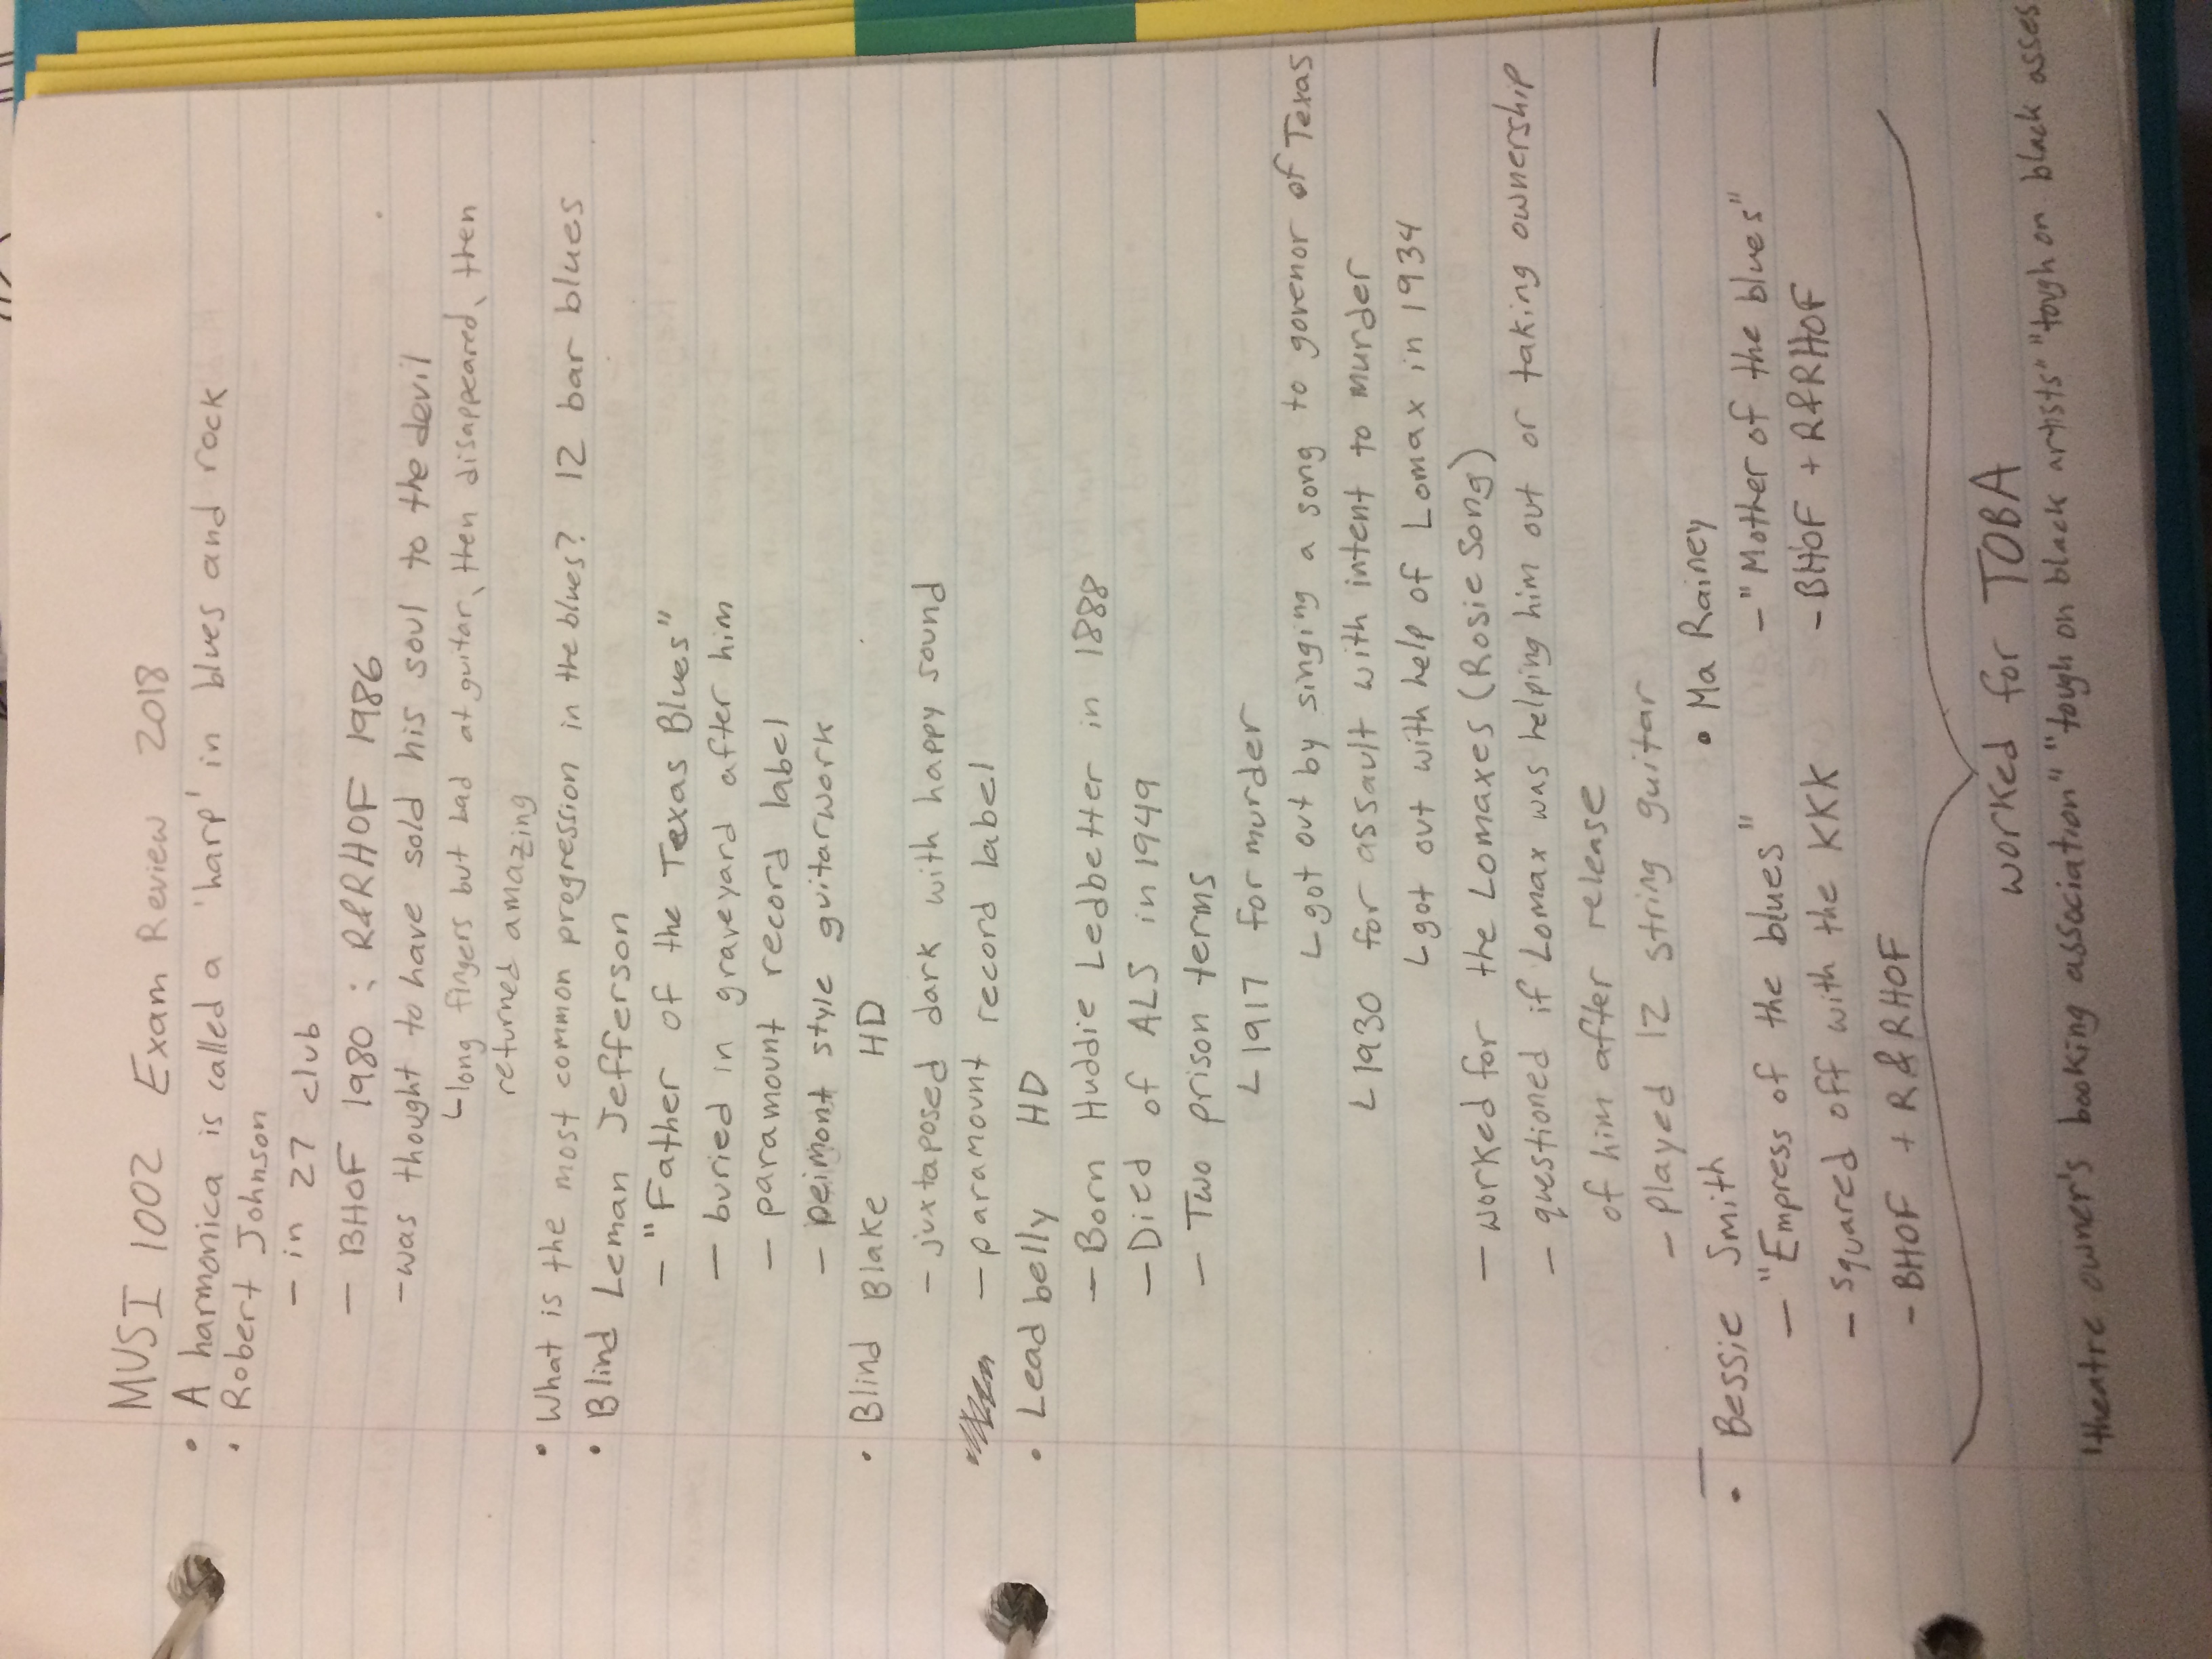 MUSI 1002 Exam Review 2018
• A harmonica is called a 'harp' in blues and rock
• Robert Johnson
- in 27 club
- BHOF 1980 ; R&RHOF 1986
- was thought to have sold his soul to the devil
L long fingers but bad at guitar, then disappeared, then
returned amazing
• What is the most common progression in the blues? 12 bar blues
• Blind Leman Jefferson
- "Father of the Texas Blues"
- buried in graveyard after him
- paramount record label
- peimont style guitarwork
• Blind Blake HD
- juxtaposed dark with happy sound
- paramount record label
• Lead belly HD
- Born Huddie Ledbetter in 1888
- Died of ALS in 1949
- Two prison terms
L 1917 for murder
L got out by singing a song to govenor of Texas
L 1930 for assault with intent to murder
L got out with help of Lomax in 1934
- worked for the Lomaxes (Rosie Song)
- questioned if Lomax was helping him out or taking ownership
of him after release
- played 12 string guitar
• Bessie Smith
- "Empress of the blues"
- squared off with the KKK
- BHOF + R&RHOF
• Ma Rainey
- "Mother of the blues"
- BHOF + R&RHOF
worked for TOBA
"theatre owner's booking association" "tough on black artists" "tough on black asses